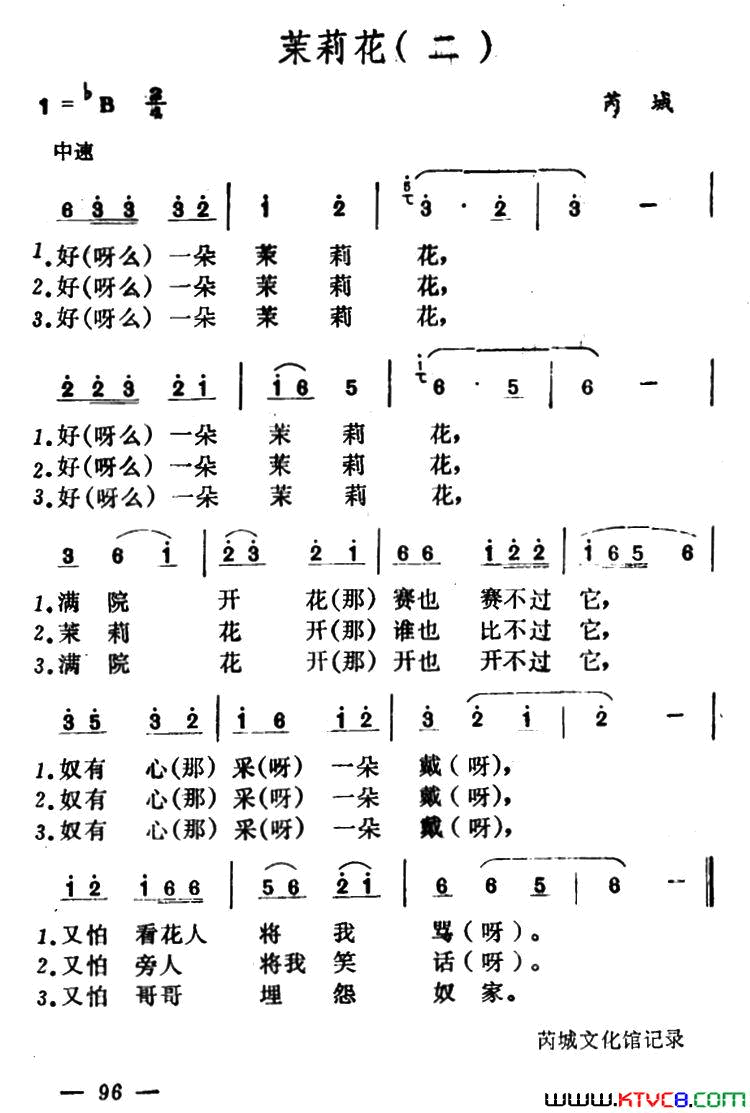 茉莉花(二)
1=♭B 2/4 芮城
中速
6 3̇ 3̇ 3̇ 2̇ | 1̇ 2̇ | 5̇ 3̇ · 2̇ | 3̇ — |
1.好(呀么)一朵 茉 莉 花,
2.好(呀么)一朵 茉 莉 花,
3.好(呀么)一朵 茉 莉 花,
2̇ 2̇ 3̇ 2̇ 1̇ | 1̇ 6 5 | 1̇ 6 · 5 | 6 — |
1.好(呀么)一朵 茉 莉 花,
2.好(呀么)一朵 茉 莉 花,
3.好(呀么)一朵 茉 莉 花,
3 6 1̇ | 2̇ 3̇ 2̇ 1̇ | 6 6 1̇ 2̇ 2̇ | 1̇ 6 5 6 |
1.满 院 开 花(那)赛也 赛不过它,
2.茉 莉 花 开(那)谁也 比不过它,
3.满 院 花 开(那)开也 开不过它,
3̇ 5̇ 3̇ 2̇ | 1̇ 6 1̇ 2̇ | 3̇ 2̇ 1̇ | 2̇ — |
1.奴有 心(那)采(呀)一朵 戴(呀),
2.奴有 心(那)采(呀)一朵 戴(呀),
3.奴有 心(那)采(呀)一朵 戴(呀),
1̇ 2̇ 1̇ 6 6 | 5 6 2̇ 1̇ | 6 6 5 | 6 — ‖
1.又怕 看花人 将 我 骂(呀)。
2.又怕 旁人 将我 笑 话(呀)。
3.又怕 哥哥 埋 怨 奴 家。
芮城文化馆记录
— 96 —
www.KTVC8.com